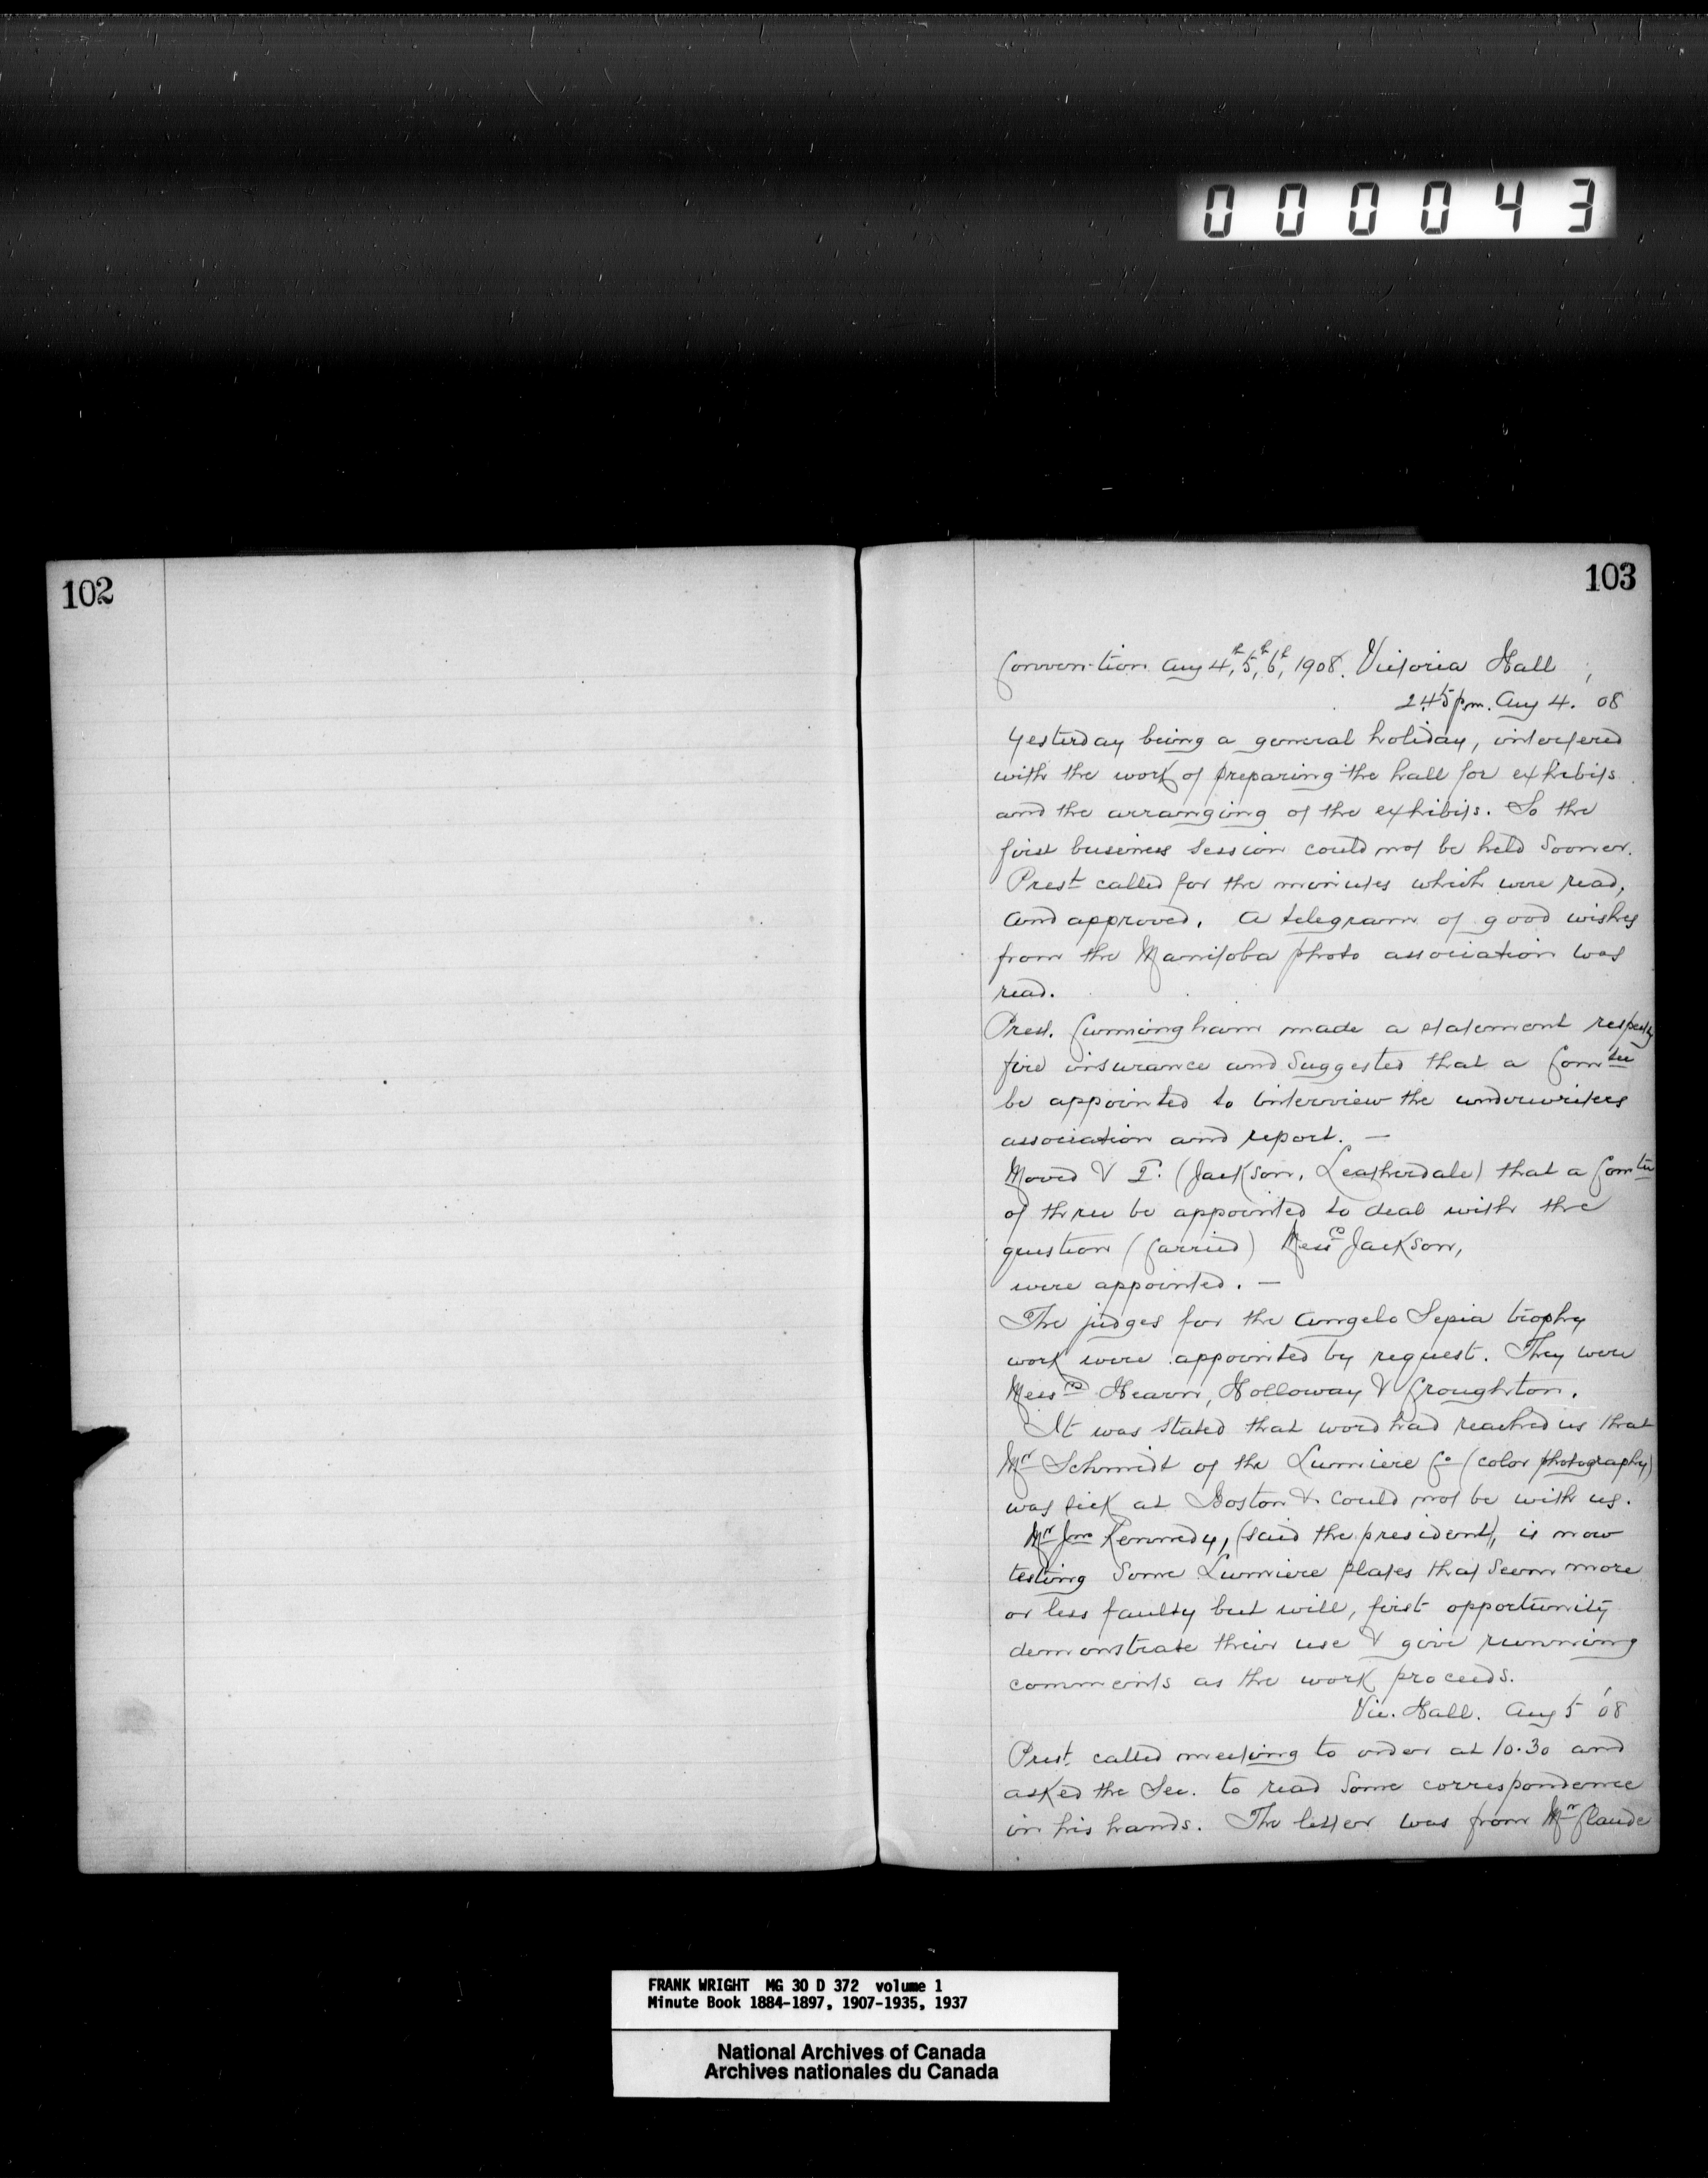 000043
102
103
Convention Aug 4th, 5th, 6th, 1908. Victoria Hall,
2.45 pm. Aug 4. 08
Yesterday being a general holiday, interfered
with the work of preparing the hall for exhibits
and the arranging of the exhibits. So the
first business session could not be held sooner.
Prest called for the minutes which were read,
and approved. A telegram of good wishes
from the Manitoba photo association was
read.
Prest. Cunningham made a statement respectg
fire insurance and suggested that a Comtee
be appointed to interview the underwriters
association and report. —
Moved & 2d. (Jackson, Leatherdale) that a Comtee
of three be appointed to deal with the
question (Carried) Messrs Jackson,
were appointed. —
The judges for the Angelo Sepia trophy
work were appointed by request. They were
Messrs Hearn, Holloway & Croughton.
It was stated that word had reached us that
Mr Schmidt of the Lumiere Co (color photography)
was sick at Boston & could not be with us.
Mr Jno Kennedy, (said the president), is now
testing some Lumiere plates that seem more
or less faulty but will, first opportunity
demonstrate their use & give running
comments as the work proceeds.
Vic. Hall. Aug 5 '08
Prest. called meeting to order at 10.30 and
asked the Sec. to read some correspondence
in his hands. The letter was from Mr Claude
FRANK WRIGHT MG 30 D 372 volume 1
Minute Book 1884-1897, 1907-1935, 1937
National Archives of Canada
Archives nationales du Canada